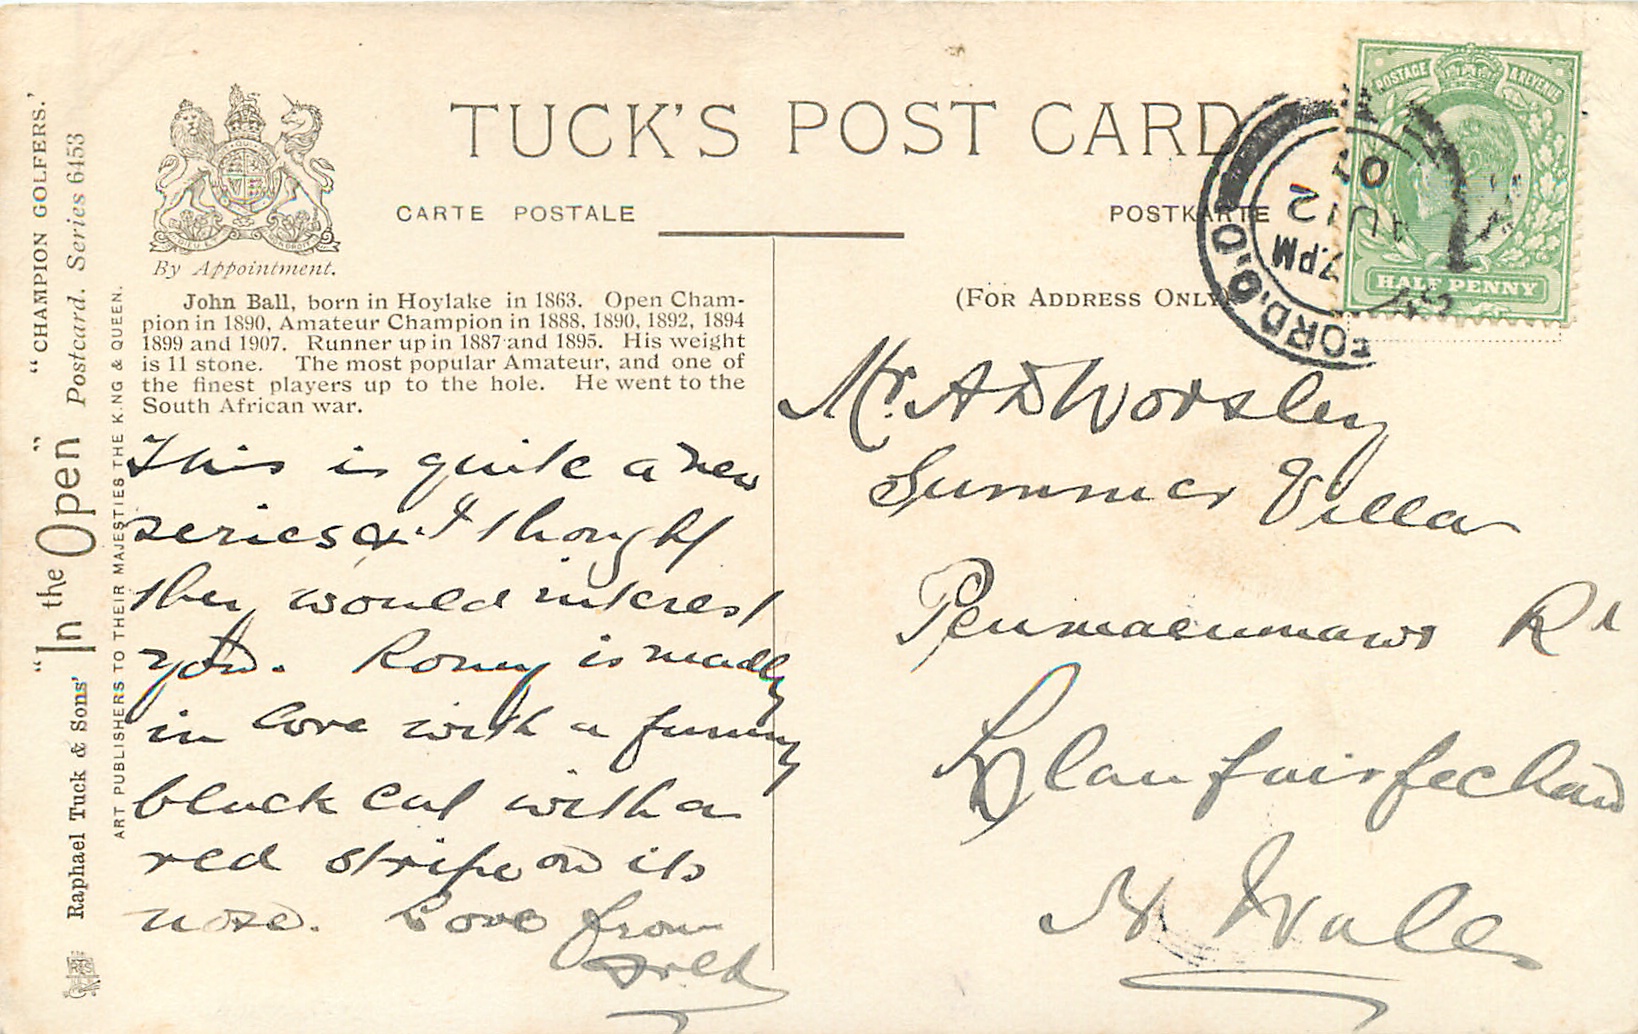 "CHAMPION GOLFERS."
"In the Open" Postcard. Series 6453
Raphael Tuck & Sons'
ART PUBLISHERS TO THEIR MAJESTIES THE KING & QUEEN.
TUCK'S POST CARD
CARTE POSTALE
POSTKARTE
By Appointment.
(FOR ADDRESS ONLY)
John Ball, born in Hoylake in 1863. Open Cham-
pion in 1890, Amateur Champion in 1888, 1890, 1892, 1894
1899 and 1907. Runner up in 1887 and 1895. His weight
is 11 stone. The most popular Amateur, and one of
the finest players up to the hole. He went to the
South African war.
This is quite a new
series & I thought
they would interest
you. Romy is madly
in love with a funny
black cat with a
red stripe on its
nose. Love from
Fred
POSTAGE & REVENUE
HALF PENNY
FORD.O.O.
7.PM
AU 12
Mr. A D Worsley
Summer Villa
Penmaenmawr Rd
Llanfairfechan
N Wales